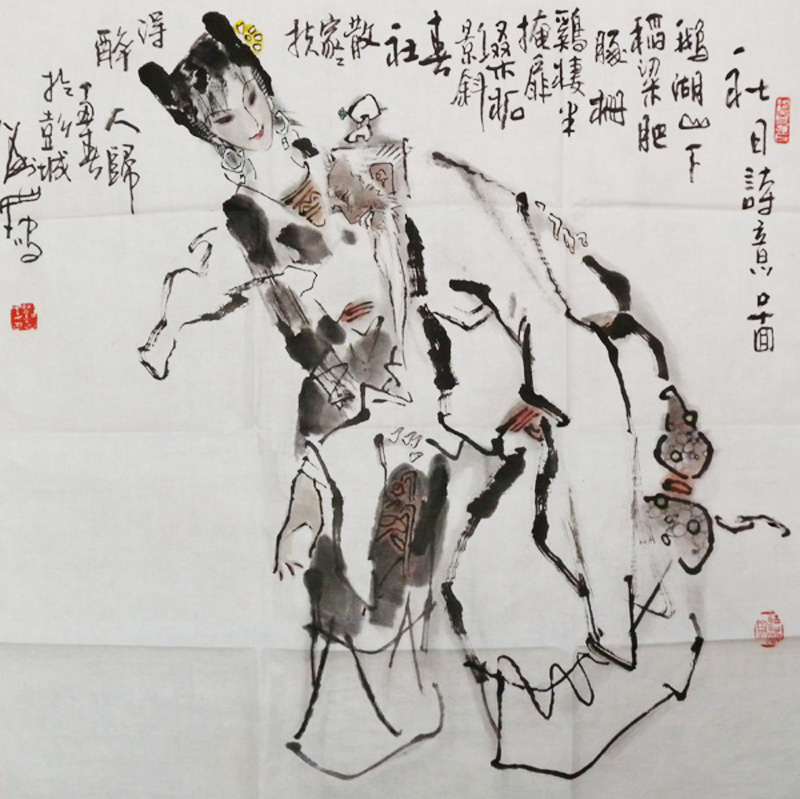 社日詩意圖
鵝湖山下
稻粱肥
豚柵
鷄棲半
掩扉
桑柘
影斜
春
社
散
家々
扶
得
醉
人歸
丁酉春
於彭城